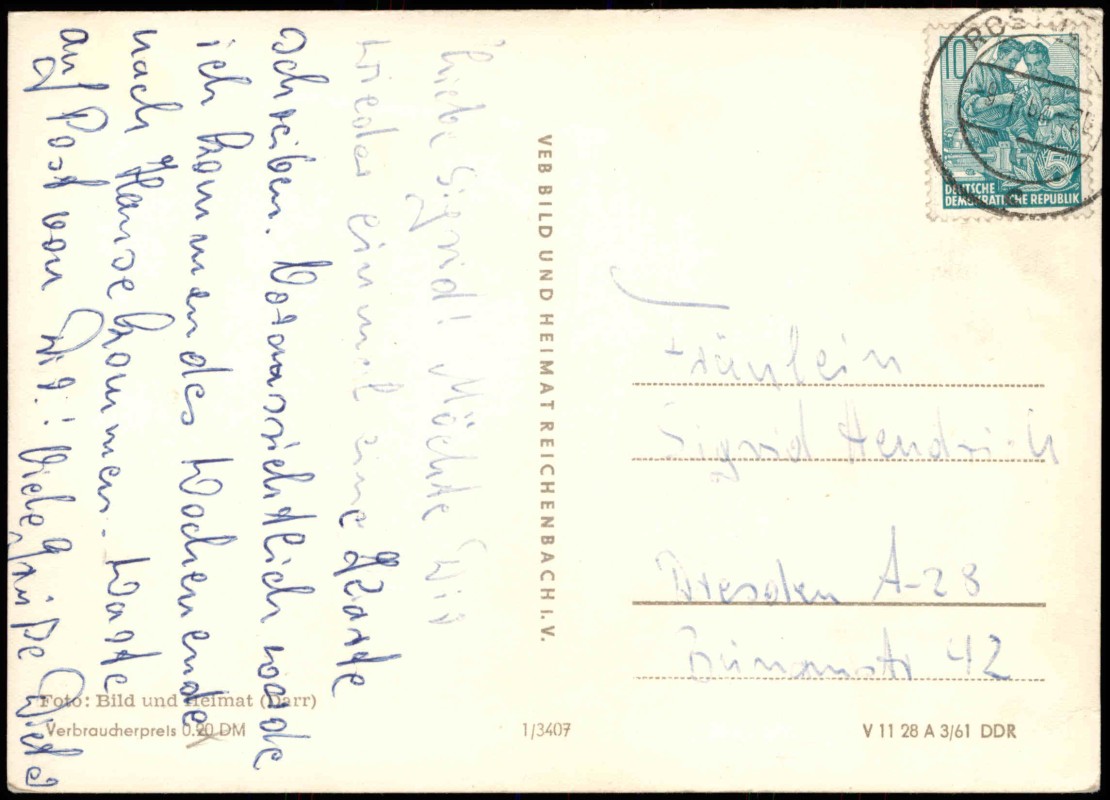 Liebe Sigrid! Möchte Dir
wieder einmal eine Karte
schreiben. Voraussichtlich werde
ich kommendes Wochenende
nach Hause kommen. Warte
auf Post von Dir! Viele Grüße Dieter
VEB BILD UND HEIMAT REICHENBACH I. V.
10
DEUTSCHE
DEMOKRATISCHE REPUBLIK
Fräulein
Sigrid Hendrich
Dresden A-28
42
Foto: Bild und Heimat (Darr)
Verbraucherpreis 0.20 DM
1/3407
V 11 28 A 3/61 DDR